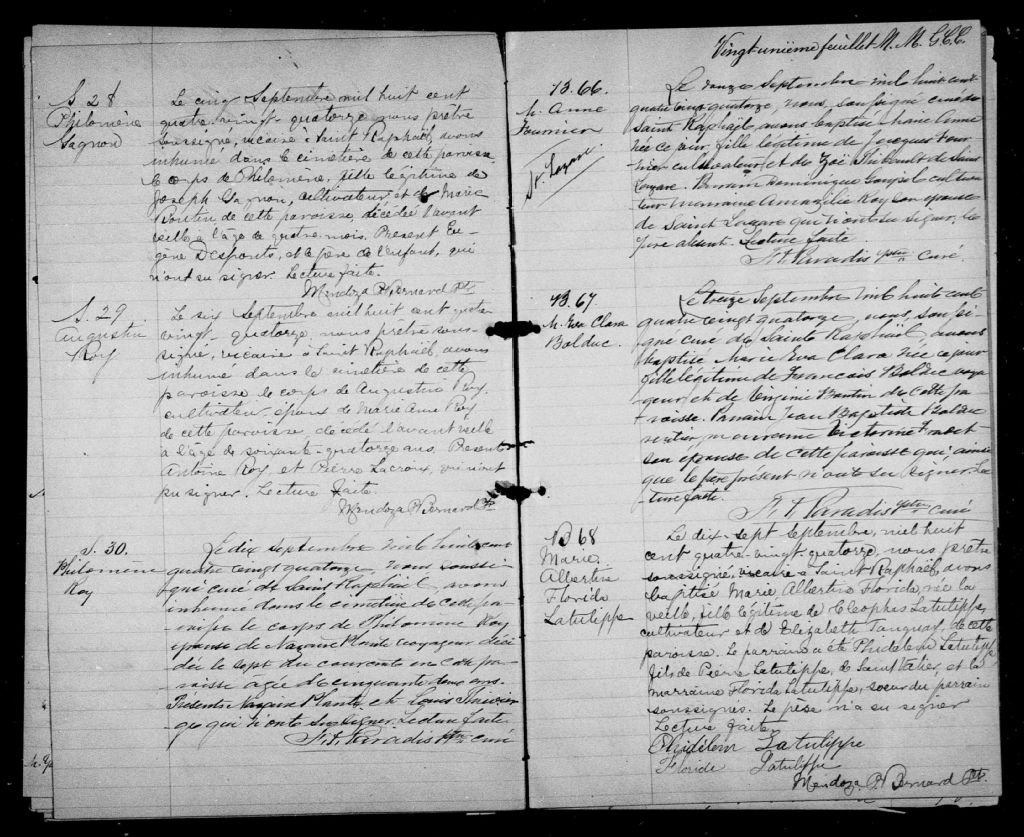 S. 28
Philomène
Gagnon
Le cinq Septembre mil huit cent
quatre-vingt-quatorze nous prêtre
soussigné, vicaire à Saint Raphaël, avons
inhumé dans le cimetière de cette paroisse
le corps de Philomène, fille légitime de
Joseph Gagnon, cultivateur et de Marie
de cette paroisse, décédée l'avant
veille à l'âge de quatre mois. Present Eu-
gène Desponts, et le père de l'enfant, qui
n'ont su signer. Lecture faite.
Mendoza P Bernard Ptr
S. 29
Augustin
Roy
Le six Septembre mil huit cent quatre
vingt-quatorze nous prêtre sous-
signé, vicaire à Saint Raphaël, avons
inhumé dans le cimetière de cette
paroisse le corps de Augustin Roy
cultivateur, époux de Marie Anne Roy
de cette paroisse, décédé l'avant veille
à l'âge de soixante-quatorze ans. Presents
Antoine Roy, et Pierre Lacroix, qui n'ont
pu signer. Lecture faite.
Mendoza P Bernard Ptr
S. 30.
Philomène
Roy
Le dix septembre mil huit cent
quatre vingt quatorze, nous soussi-
gné curé de Saint Raphaël, avons
inhumé dans le cimetière de cette pa-
roisse le corps de Philomène Roy
épouse de Nazaire Plante voyageur décé
dée le sept du courant en cette pa-
roisse agée de cinquante deux ans.
Présents Nazaire Plante et Louis
qui n'ont su signer. Lecture faite
F. X. Paradis Ptre curé
Vingt-unième feuillet M. M. G.C.C.
B. 66.
M. Anne
Fournier
St. Lazare
Le Septembre mil huit cent
quatre vingt quatorze, nous, soussigné curé de
Saint Raphaël avons baptisé Marie Anne
née ce jour, fille légitime de Jacques Four
nier cultivateur et de Zoé Thibault de Saint
Lazare. Parrain Dominique cultiva
teur marraine Roy son épouse
de Saint Lazare qui n'ont su signer, le
père absent. Lecture faite
F. X. Paradis ptre curé.
B. 67
M. Eva Clara
Bolduc.
Le treize Septembre mil huit cent
quatre vingt quatorze, nous, soussi-
gné curé de Sainte Raphaël, avons
baptisé Marie Eva Clara née ce jour
fille légitime de François Bolduc voya
geur, et de Virginie de cette pa
roisse. Parrain Jean Baptiste Bolduc
rentier, marraine Victorine
son épouse de cette paroisse qui, ainsi
que le père présent n'ont su signer. Lec
ture faite.
F. X. Paradis ptre curé
B 68
Marie
Albertine
Florida
Latulippe
Le dix-sept septembre, mil huit
cent quatre-vingt quatorze, nous prêtre
soussigné, vicaire à Saint Raphaël, avons
baptisé Marie Albertine Florida, née la
veille, fille légitime de Cléophas Latulippe,
cultivateur et de Elizabeth Tanguay, de cette
paroisse. Le parrain a été Phidelem Latulippe
fils de Pierre Latulippe, de Saint Valier, et la
marraine Florida Latulippe, soeur du parrain
soussignés. Le père n'a su signer
Lecture faite,
Phidélem Latulippe
Floride Latulippe
Mendoza P Bernard Ptr.